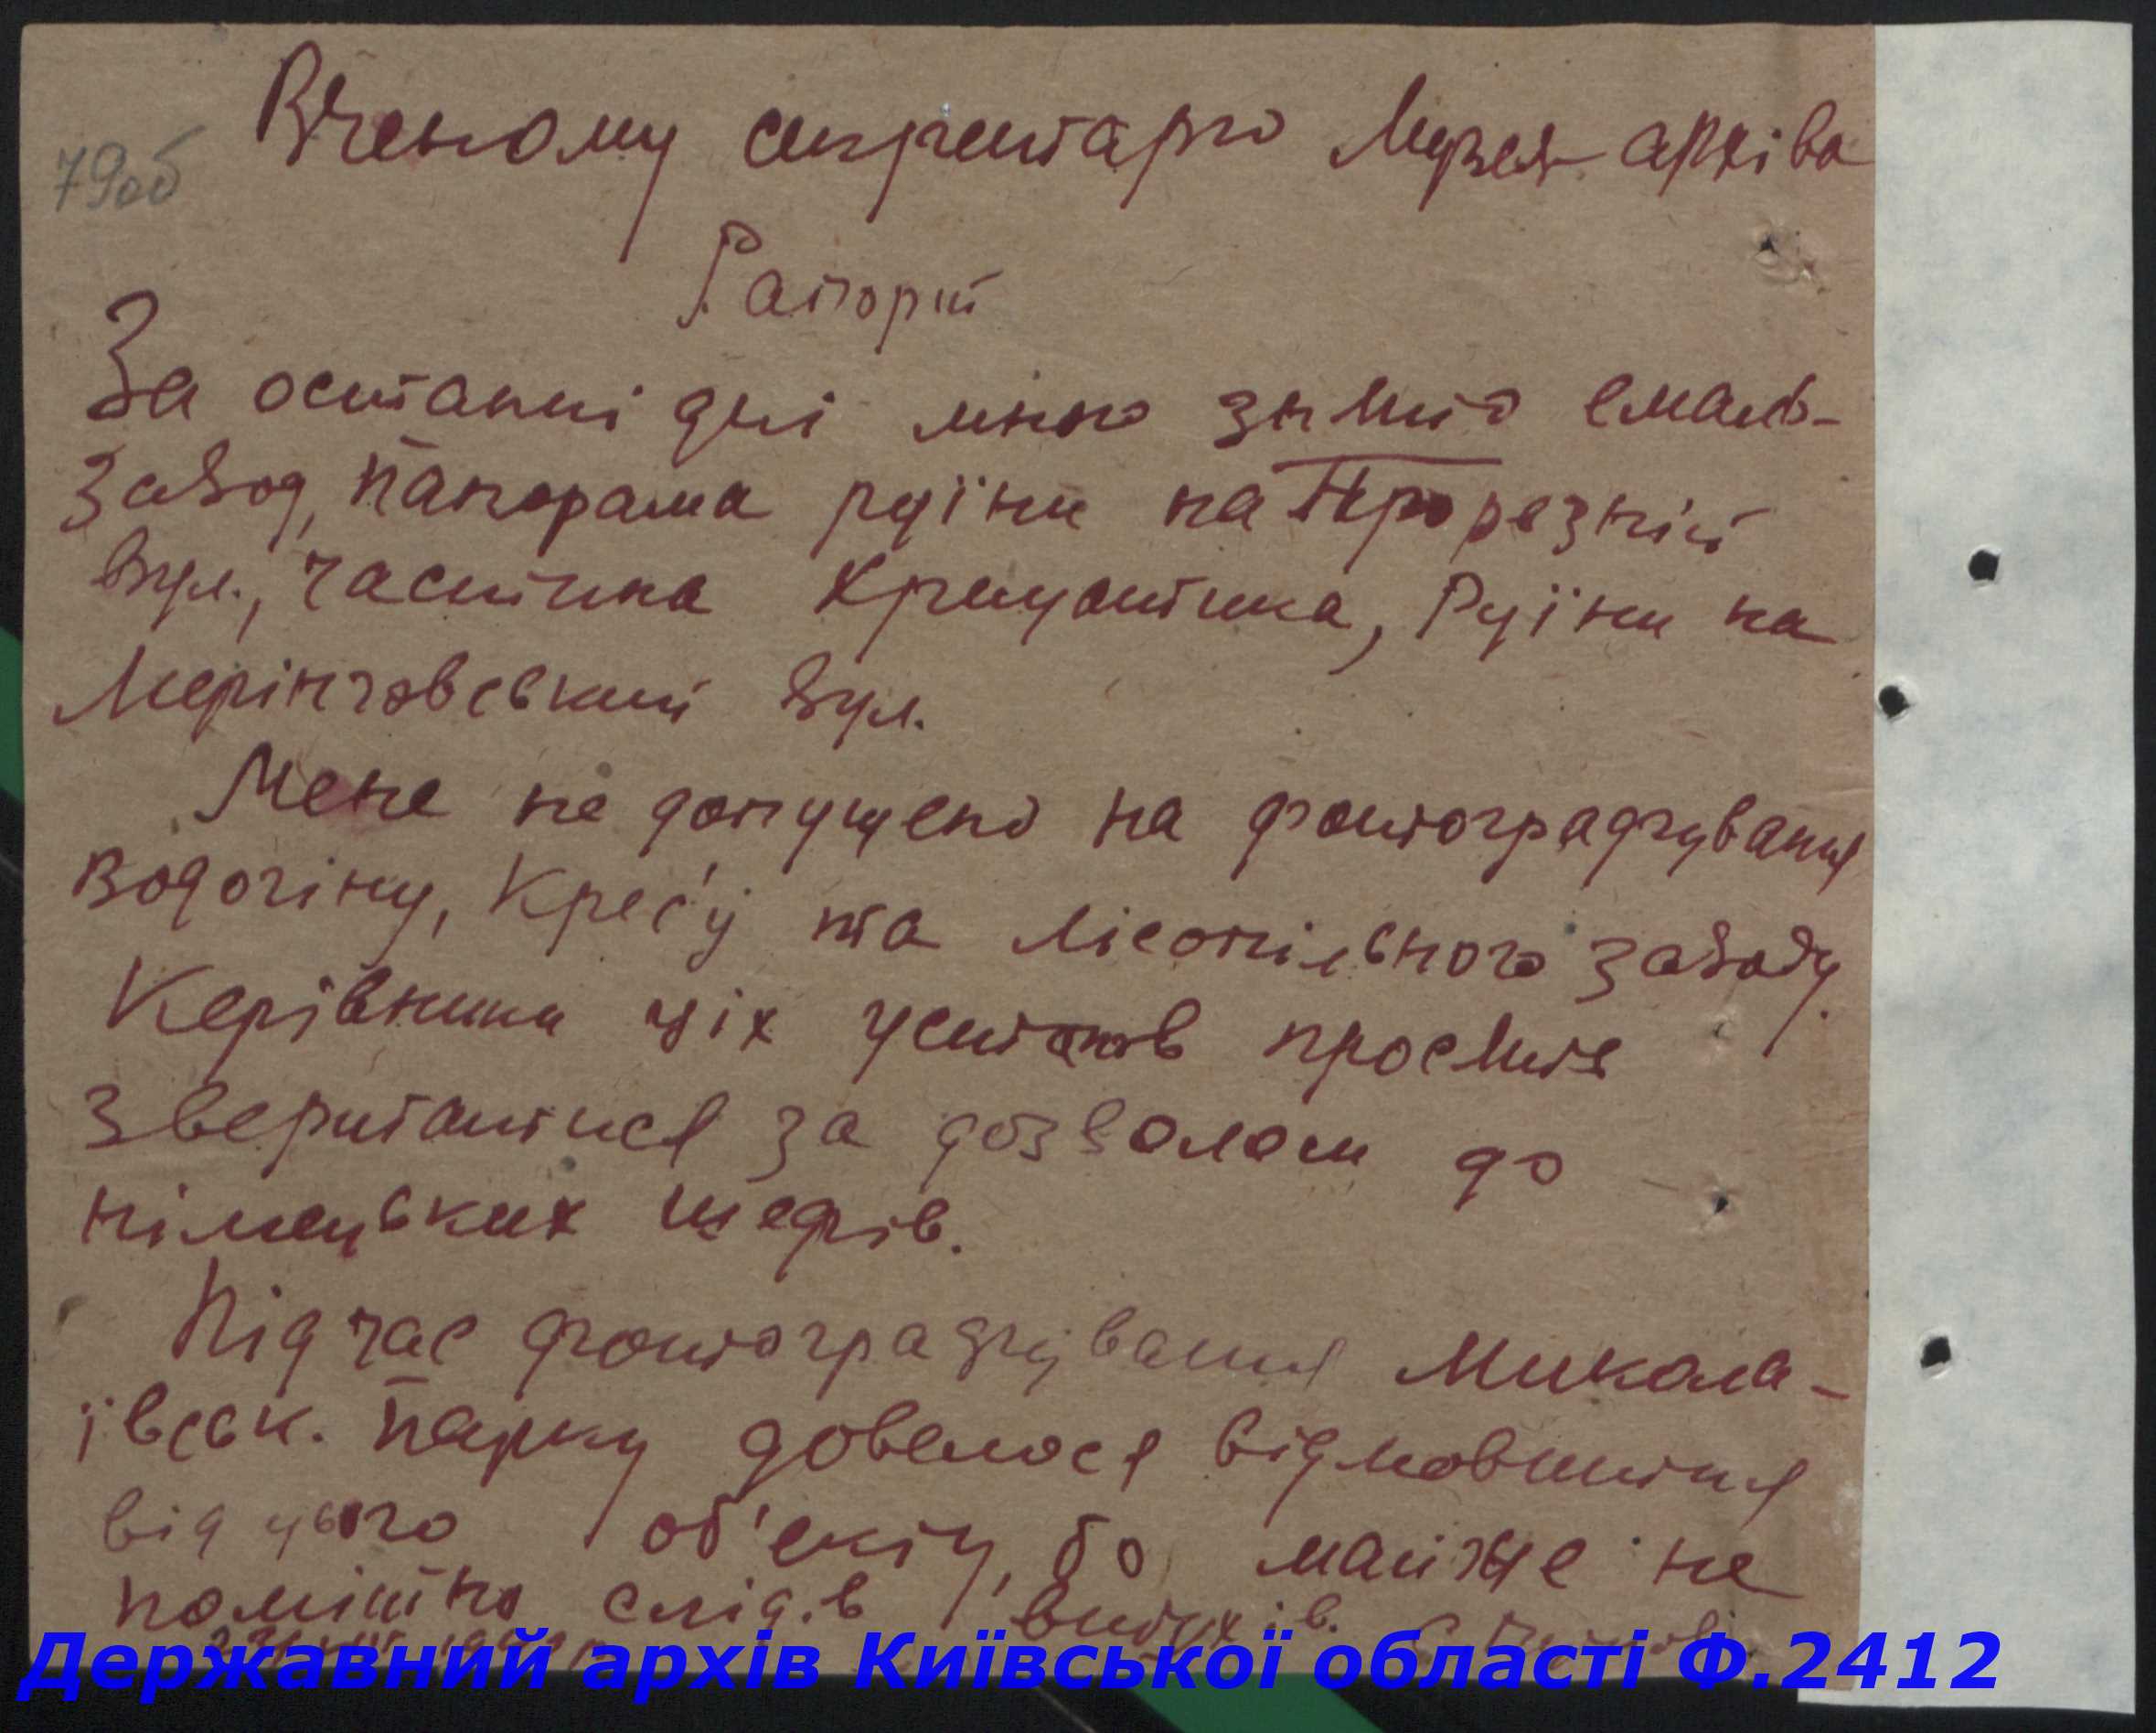 79об
Вченому секретарю Музея-архіва
Рапорт
За останні дні мною знято емаль-
завод, панорама руїни на Прорезній
вул., частина Крещатика, Руїни на
Мерінговський вул.
Мене не допущено на фотографування
Водогіну, Крес'у та лісопильного заводу.
Керівники ціх установ просять
звертатися за дозволом до
німецьких шефів.
Під час фотографування Микола-
ївськ. парку довелося відмовитися
від цього об'екту, бо майже не
помітно слідів вибухів.
Державний архів Київської області Ф.2412